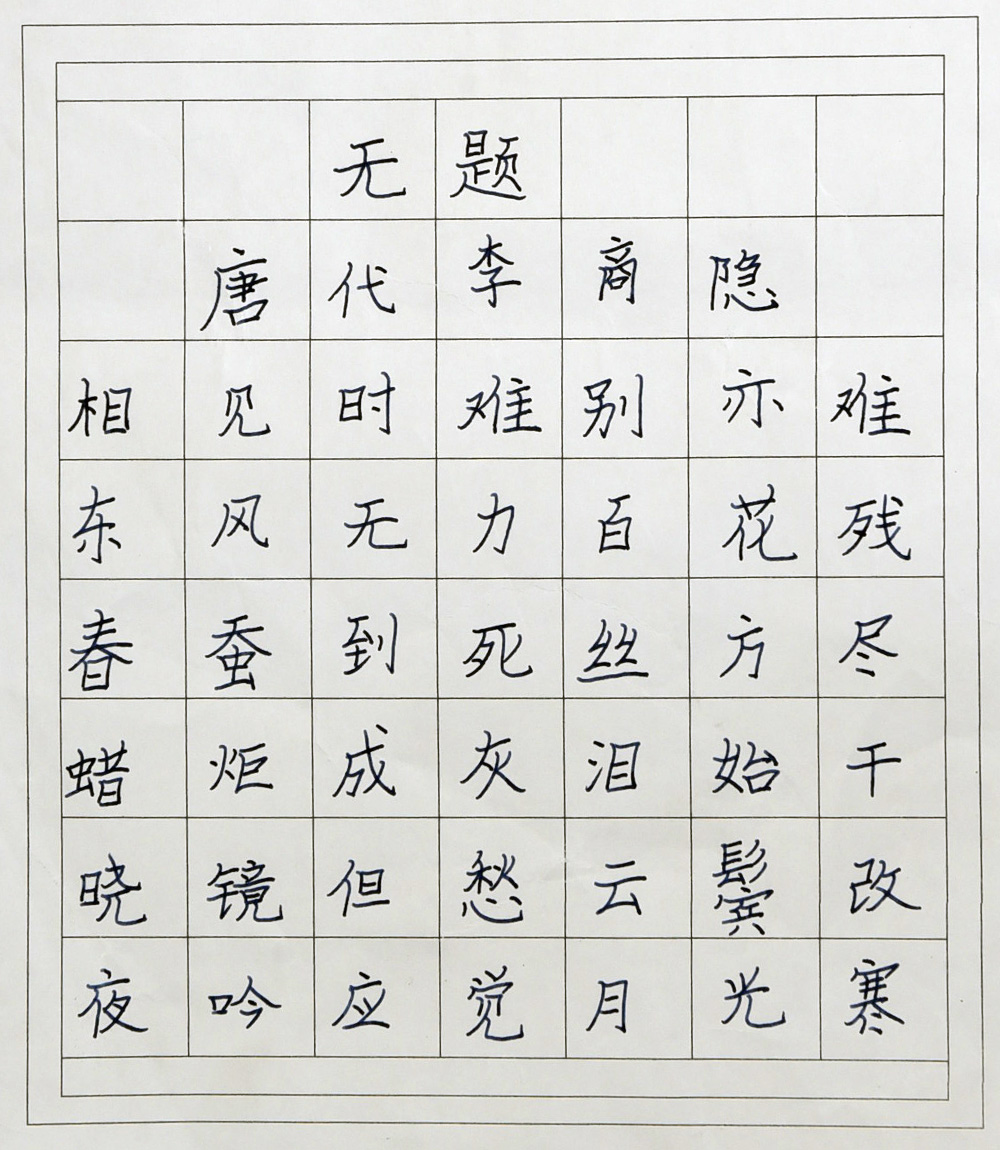 无题
唐代李商隐
相见时难别亦难
东风无力百花残
春蚕到死丝方尽
蜡炬成灰泪始干
晓镜但愁云鬓改
夜吟应觉月光寒